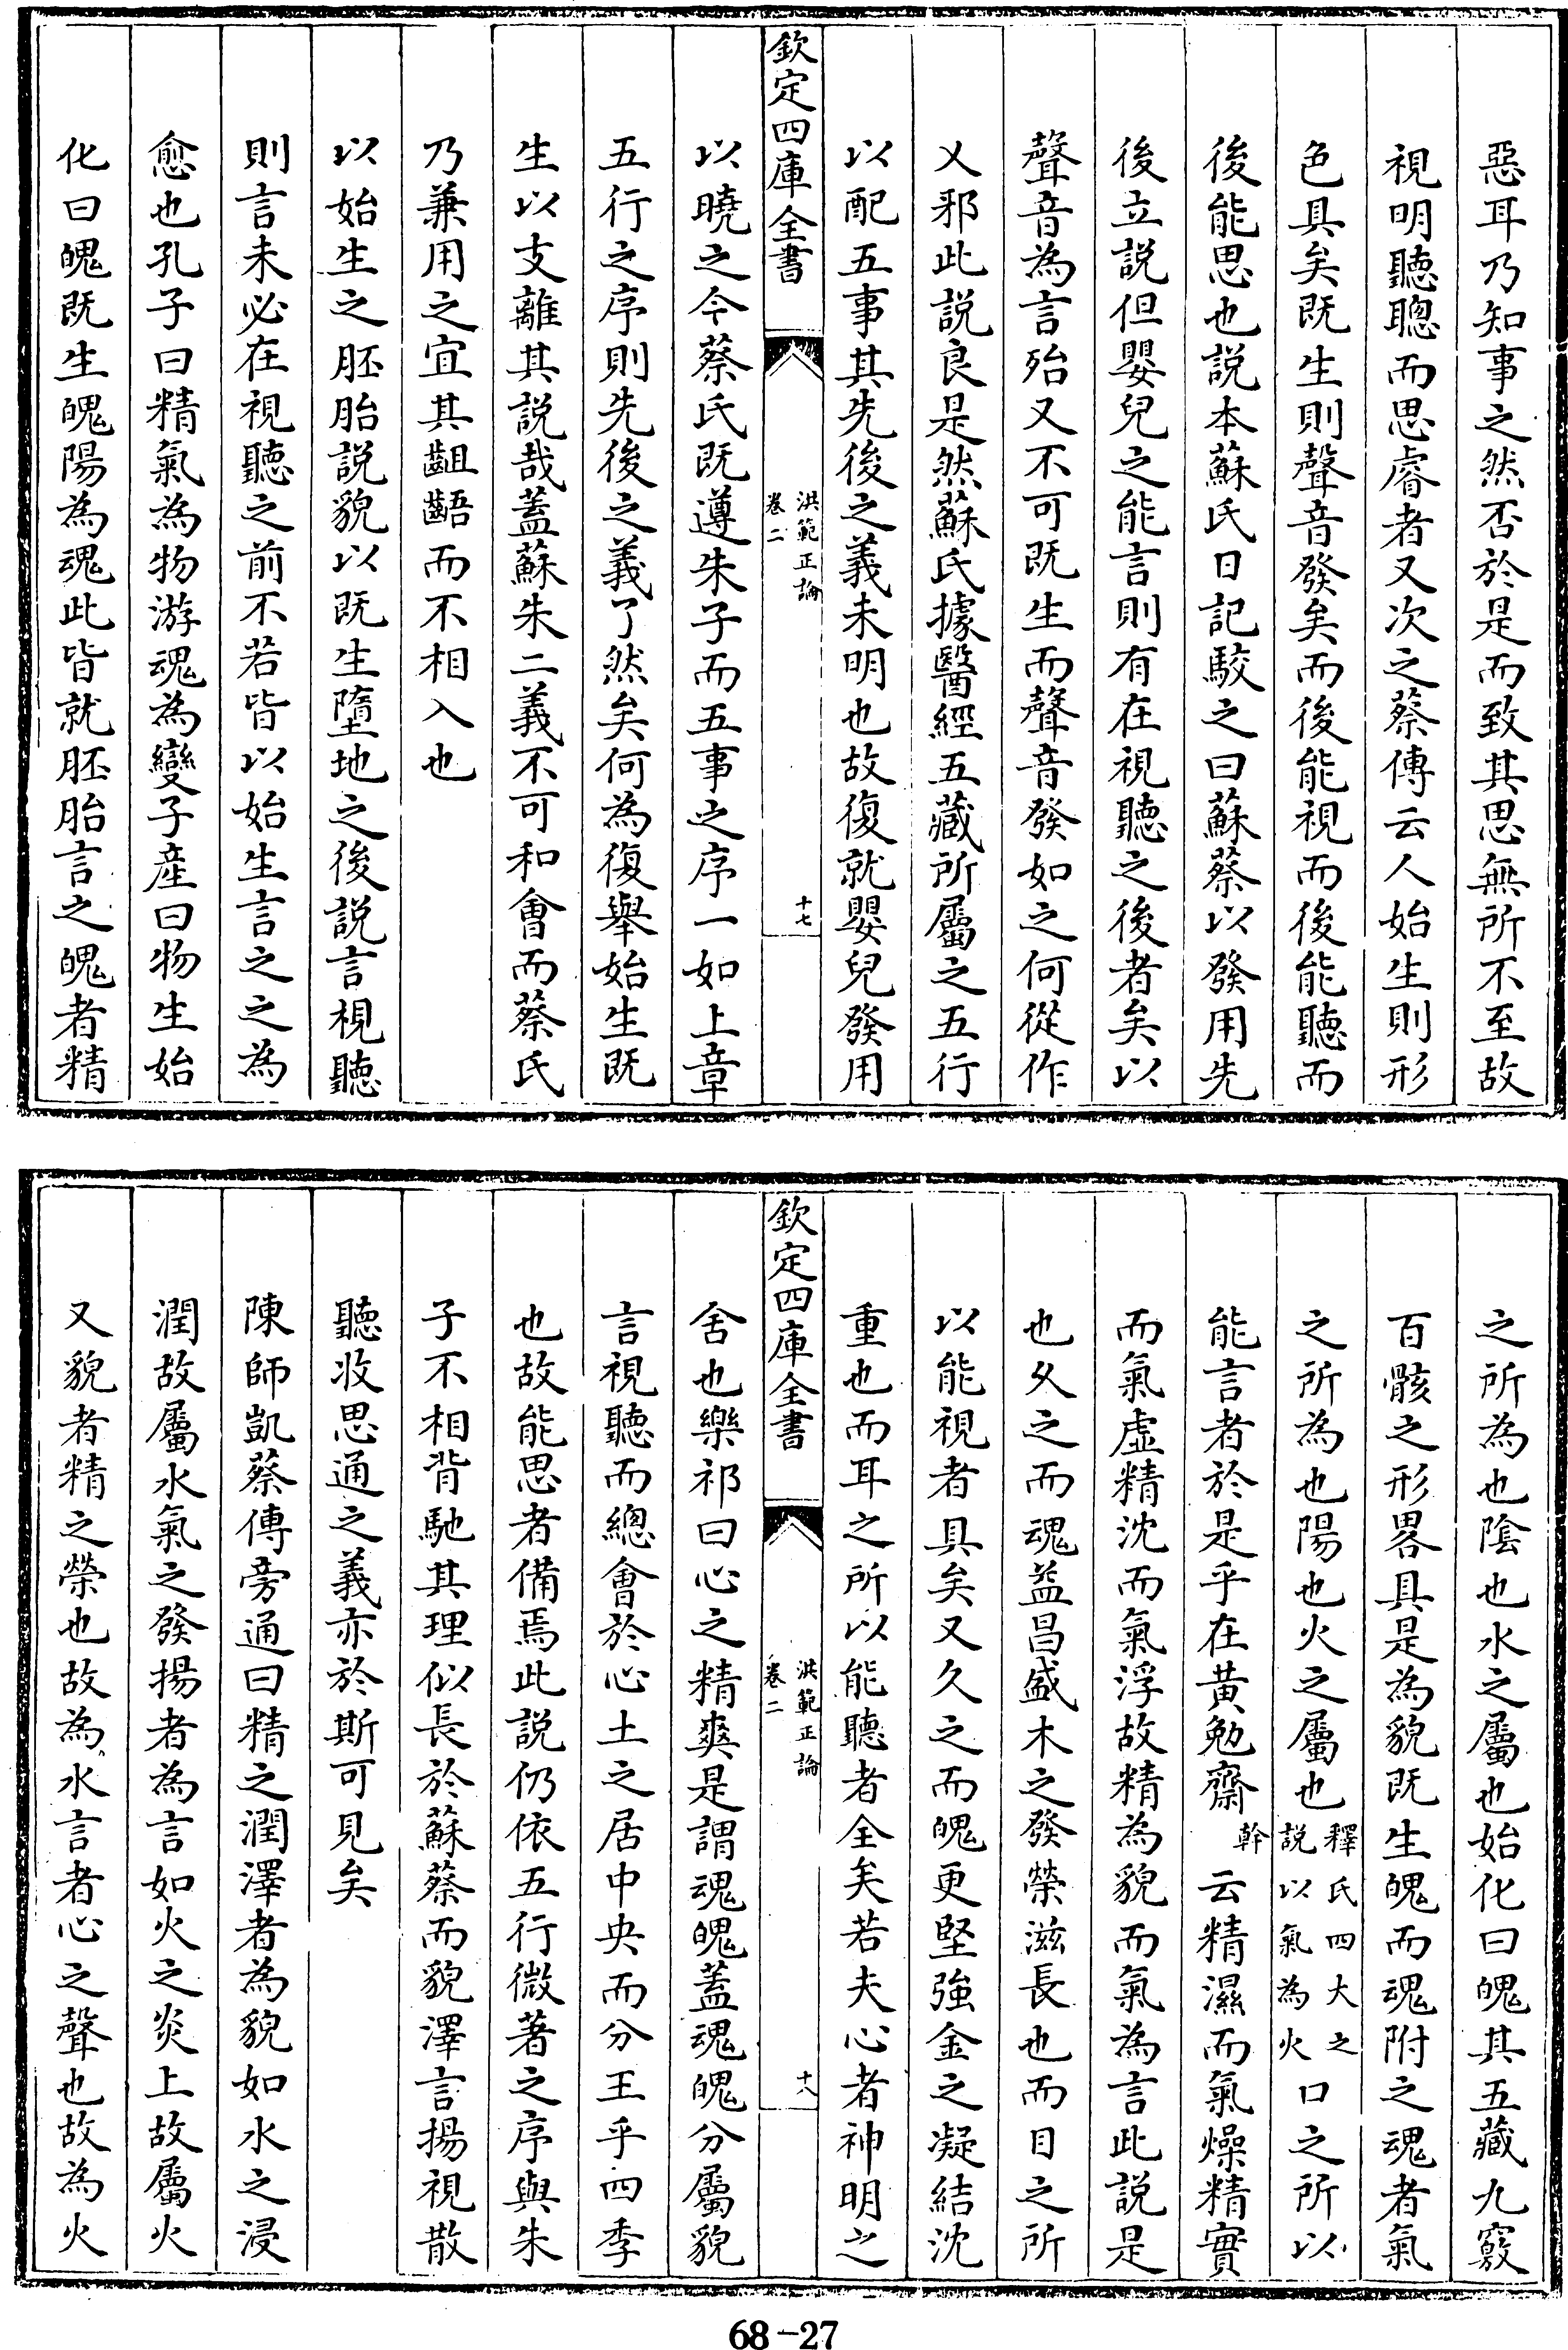 惡耳乃知事之然否於是而致其思無所不至故
視明聽聰而思睿者又次之蔡傳云人始生則形
色具矣既生則聲音發矣而後能視而後能聽而
後能思也說本蘇氏日記駁之曰蘇蔡以發用先
後立說但嬰兒之能言則有在視聽之後者矣以
聲音為言殆又不可既生而聲音發如之何從作
乂邪此說良是然蘇氏據醫經五藏所屬之五行
以配五事其先後之義未明也故復就嬰兒發用
欽定四庫全書
洪範正論
卷二
十七
以曉之今蔡氏既遵朱子而五事之序一如上章
五行之序則先後之義了然矣何為復舉始生既
生以支離其說哉蓋蘇朱二義不可和會而蔡氏
乃兼用之宜其齟齬而不相入也
以始生之胚胎說貌以既生墮地之後說言視聽
則言未必在視聽之前不若皆以始生言之之為
愈也孔子曰精氣為物游魂為變子產曰物生始
化曰魄既生魄陽為魂此皆就胚胎言之魄者精
之所為也陰也水之屬也始化曰魄其五藏九竅
百骸之形畧具是為貌既生魄而魂附之魂者氣
之所為也陽也火之屬也釋氏四大之說以氣為火口之所以
能言者於是乎在黃勉齋幹云精濕而氣燥精實
而氣虛精沈而氣浮故精為貌而氣為言此說是
也久之而魂益昌盛木之發榮滋長也而目之所
以能視者具矣又久之而魄更堅強金之凝結沈
重也而耳之所以能聽者全矣若夫心者神明之
欽定四庫全書
洪範正論
卷二
十八
舍也樂祁曰心之精爽是謂魂魄蓋魂魄分屬貌
言視聽而總會於心土之居中央而分王乎四季
也故能思者備焉此說仍依五行微著之序與朱
子不相背馳其理似長於蘇蔡而貌澤言揚視散
聽收思通之義亦於斯可見矣
陳師凱蔡傳旁通曰精之潤澤者為貌如水之浸
潤故屬水氣之發揚者為言如火之炎上故屬火
又貌者精之榮也故為水言者心之聲也故為火
68-27